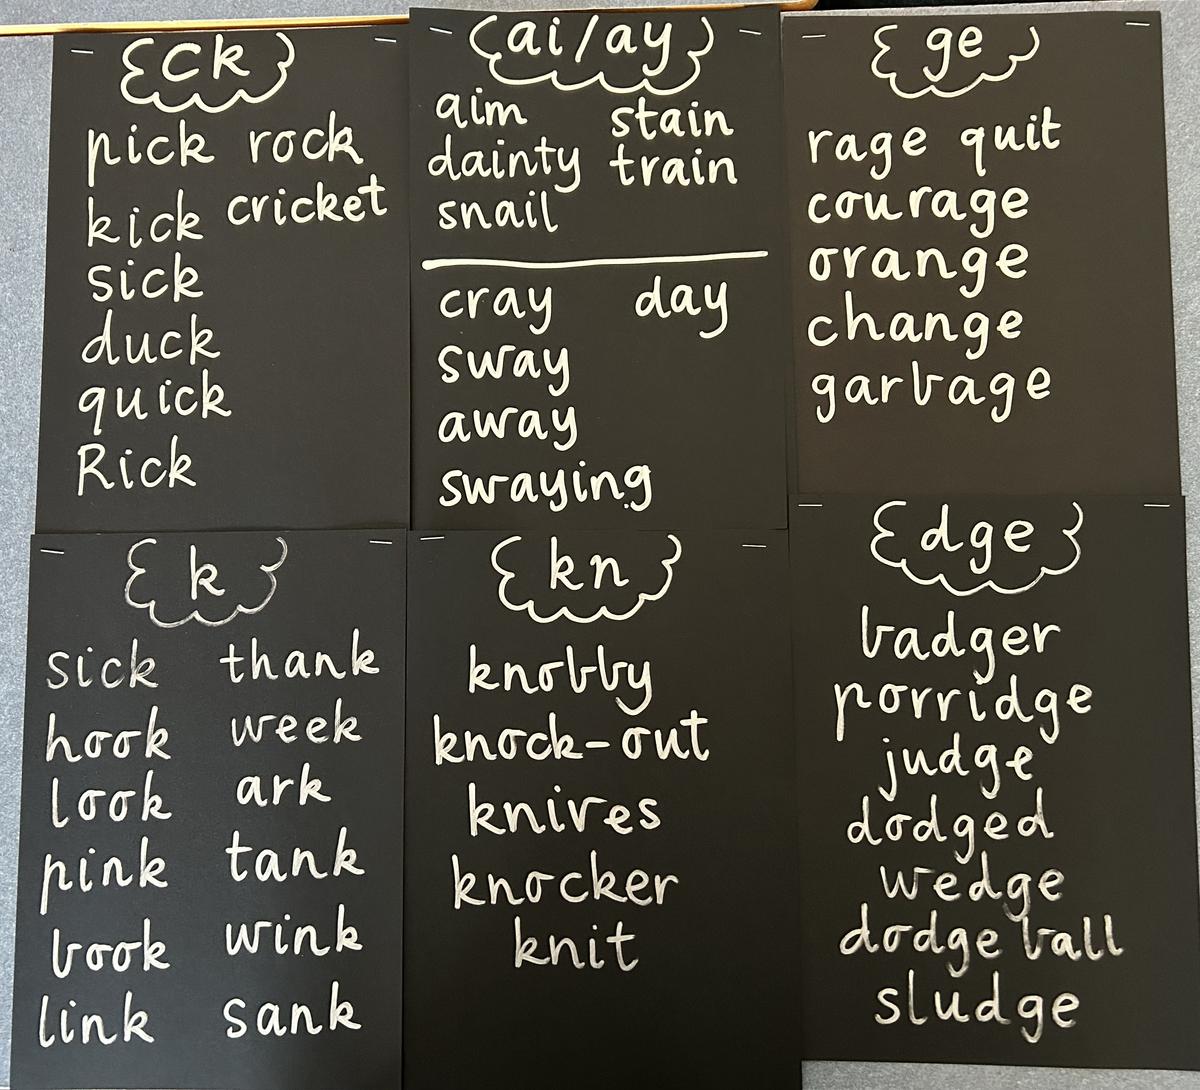 ck
pick rock
kick cricket
sick
duck
quick
Rick
ai/ay
aim stain
dainty train
snail
cray day
sway
away
swaying
ge
rage quit
courage
orange
change
garbage
k
sick thank
hook week
look ark
pink tank
book wink
link sank
kn
knobby
knock-out
knives
knocker
knit
dge
badger
porridge
judge
dodged
wedge
dodge ball
sludge